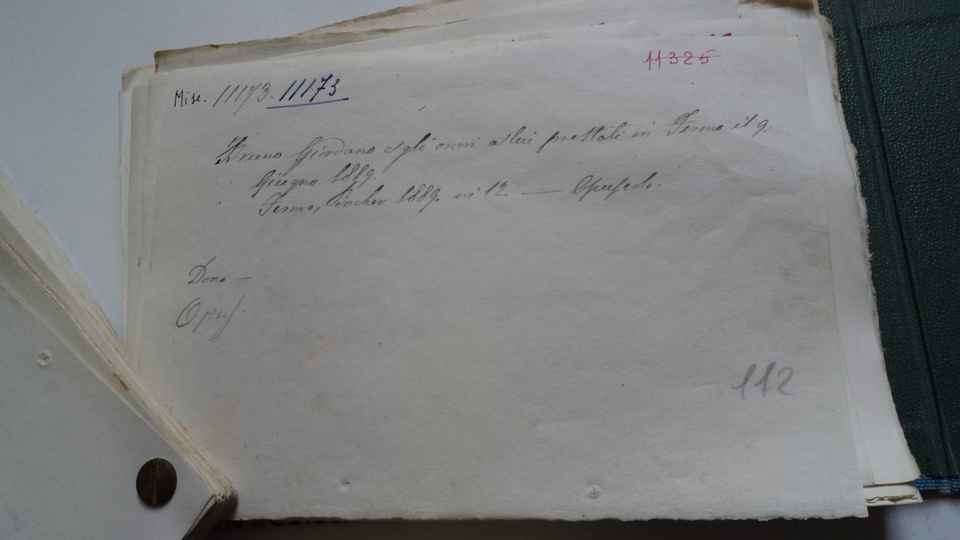 11325
Misc. 11173. 11173
Bruno Giordano e gli onori a lui prestati in Fermo il 9.
Giugno 1889.
Fermo, Bacher 1889. in 12. — Opuscolo.
Dono —
Opusc.
112